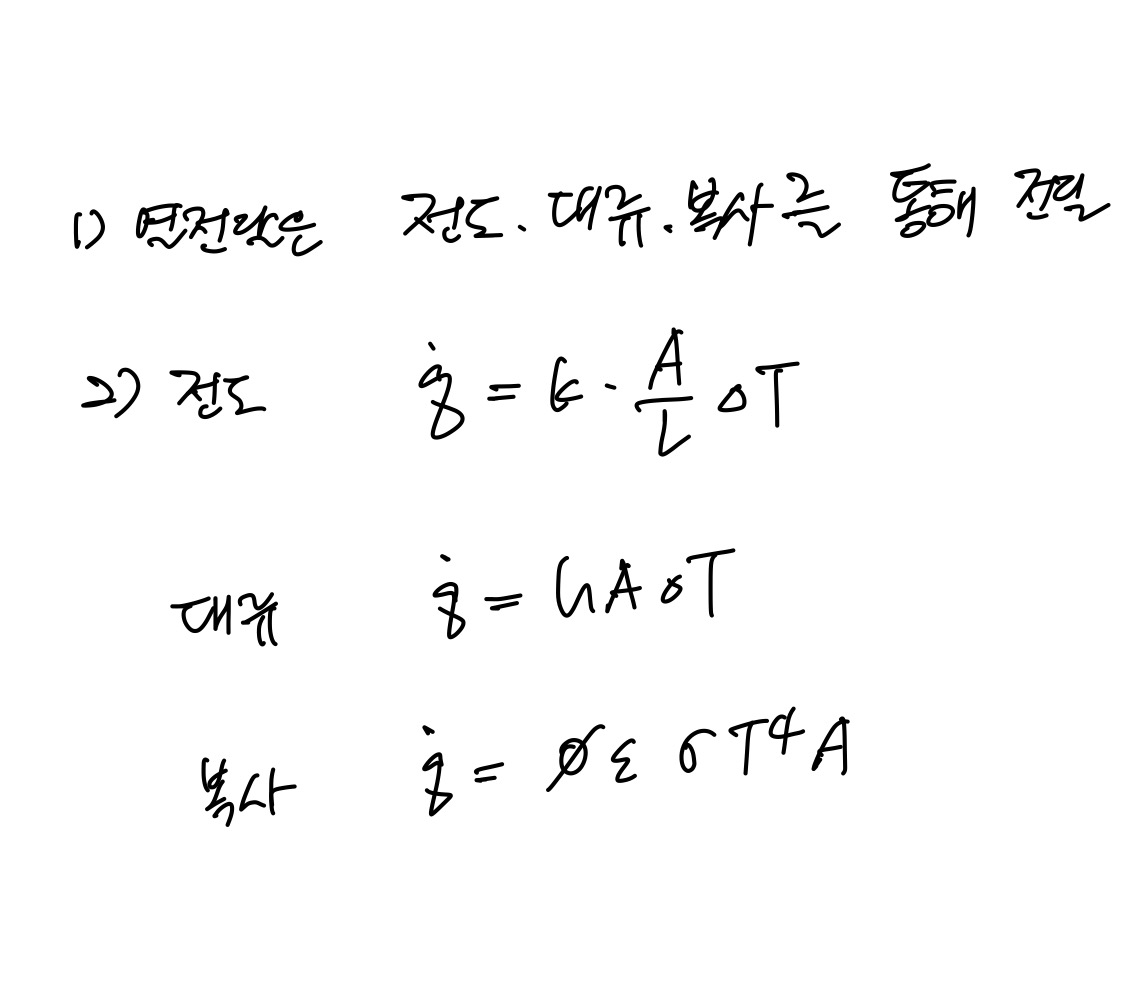 1) 열전달은 전도.대류.복사를 통해 전달
2) 전도 q̇ = k · A/L ΔT
대류 q̇ = hAΔT
복사 q̇ = φε σT⁴A